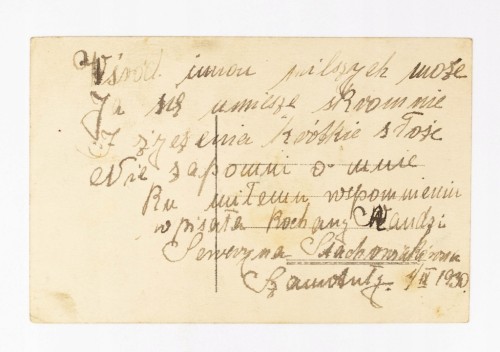 Wśród imion milszych może
Ja się umieszę skromnie
I życzenia krótkie złożę
Nie zapomni o mnie
Ku miłemu wspomnieniu
wpisała kochanej Wandzi
Seweryna
Szamotuły 1930